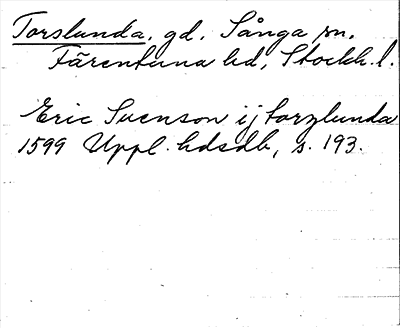 Torslunda, gd, Sånga sn,
Färentuna hd, Stockh. l.
Eric Suenson ij torzlunda
1599 Uppl. hdsdb, s. 193.